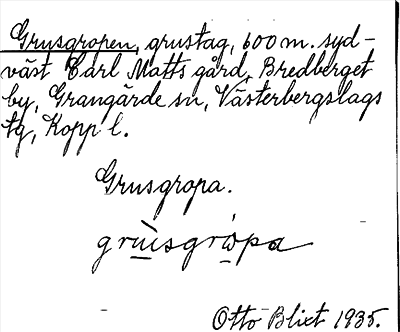 Grusgropen, grustag, 600 m. syd-
väst Carl Matts gård, Bredberget
by, Grangärde sn, Västerbergslags
tg, Kopp l.
Grusgropa.
grùsgrópa
Otto Blixt 1935.